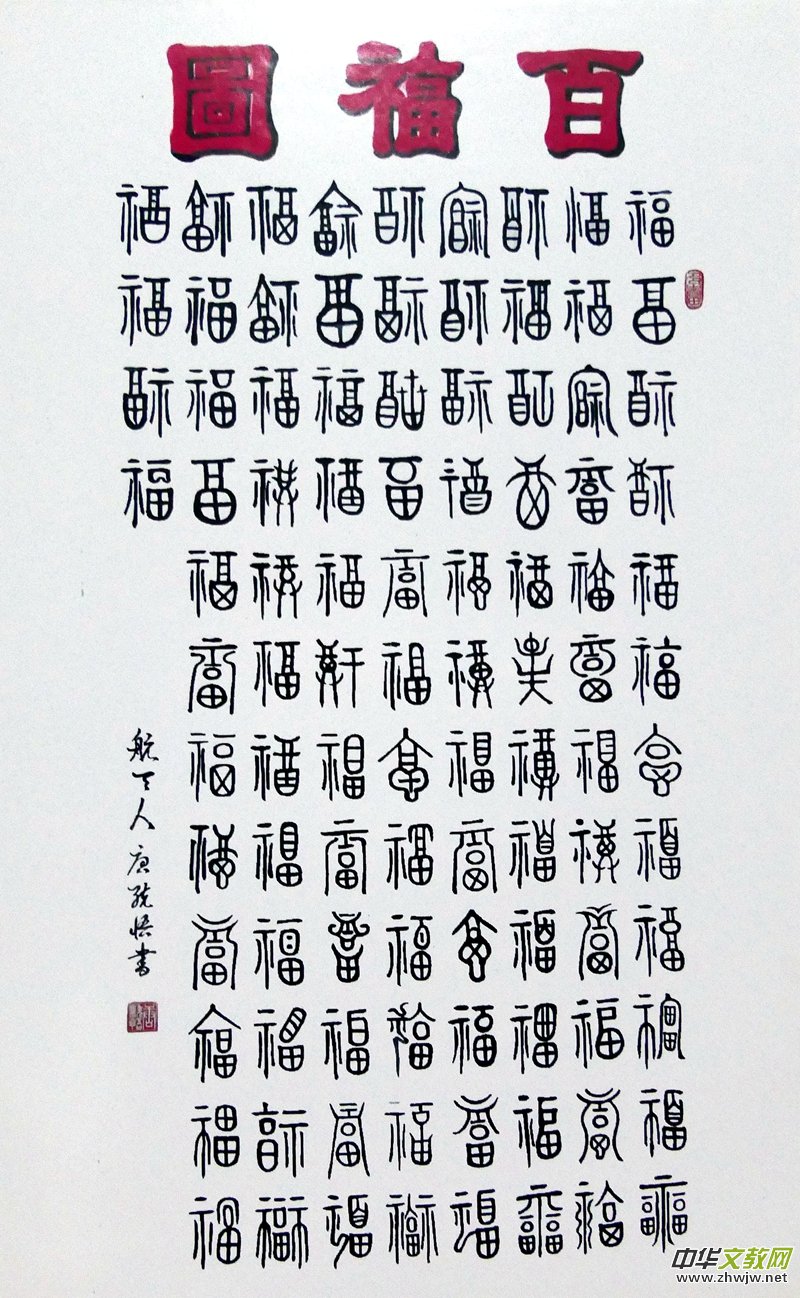 百福圖
福福福福福福福福福福福福
福福福福福福福福福福福福
福福福福福福福福福福福福
福福福福福福福福福福福福
福福福福福福福福福福福福
福福福福福福福福福福福福
福福福福福福福福福福福福
福福福福福福福福福福福福
福福福福
航天人 悟書
中华文教网
www.zhwjw.net